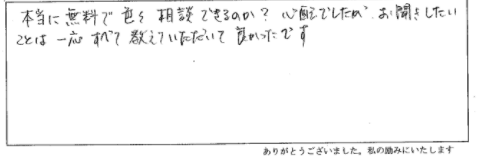 本当に無料で色々相談できるのか？心配でしたが、お聞きしたい
ことは一応すべて教えていただいて良かったです
ありがとうございました。私の励みにいたします